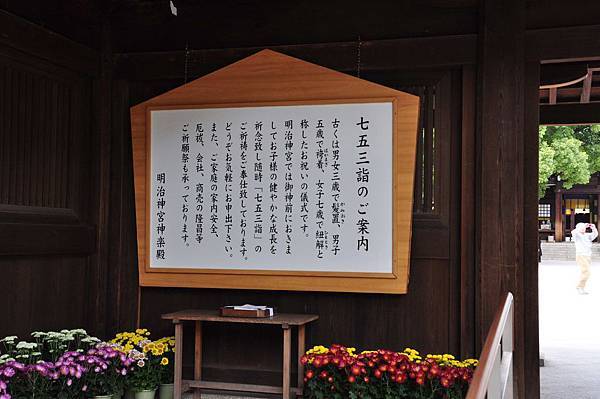 七五三詣のご案内
古くは男女三歳で髪置、男子
五歳で袴着、女子七歳で紐解と
称したお祝いの儀式です。
明治神宮では御神前におきま
してお子様の健やかな成長を
祈念致し随時「七五三詣」の
ご祈祷をご奉仕致しております。
どうぞお気軽にお申出下さい。
また、ご家庭の家内安全、
厄祓、会社、商売の隆昌等
ご祈願祭も承っております。
明治神宮神楽殿